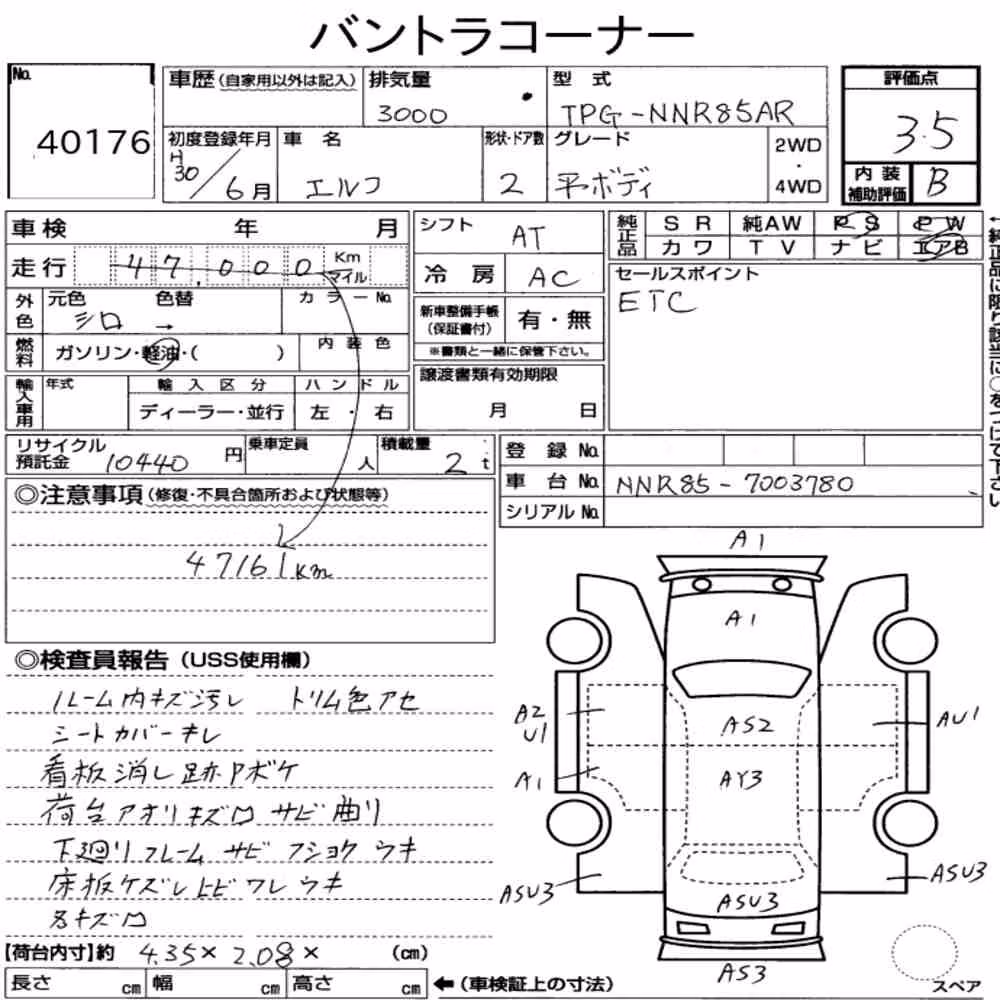 バントラコーナー
No. 40176
車歴(自家用以外は記入)
排気量 3000
型式 TPG-NNR85AR
評価点 3.5
初度登録年月 H30/6月
車名 エルフ
形状・ドア数 2
グレード 平ボディ
2WD・4WD
内装補助評価 B
車検 年 月
走行 47,000 Km マイル
シフト AT
冷房 AC
純正品 SR 純AW PS PW
カワ TV ナビ エアB
←純正品に限り該当に○をつけて下さい
セールスポイント
ETC
外色 元色 シロ 色替 → カラーNo.
燃料 ガソリン・軽油・( ) 内装色
新車整備手帳(保証書付) 有・無
※書類と一緒に保管下さい。
譲渡書類有効期限
月 日
輸入車用 年式 輸入区分 ハンドル
ディーラー・並行 左・右
リサイクル預託金 10440円
乗車定員 人
積載量 2t
登録No.
車台No. NNR85-7003780
シリアルNo.
◎注意事項(修復・不具合箇所および状態等)
47161Km
◎検査員報告(USS使用欄)
ルーム内キズ汚レ トリム色アセ
シートカバーキレ
看板消し跡Pボケ
荷台アオリキズ凹 サビ曲り
下廻りフレーム サビ フショク ウキ
床板ケズレ ヒビ ワレ ウキ
名キズ凹
【荷台内寸】約 4.35×2.08× (cm)
長さ cm 幅 cm 高さ cm ←(車検証上の寸法)
A1
A1
A2
U1
AS2
AU1
A1
AY3
ASU3
ASU3
ASU3
AS3
スペア